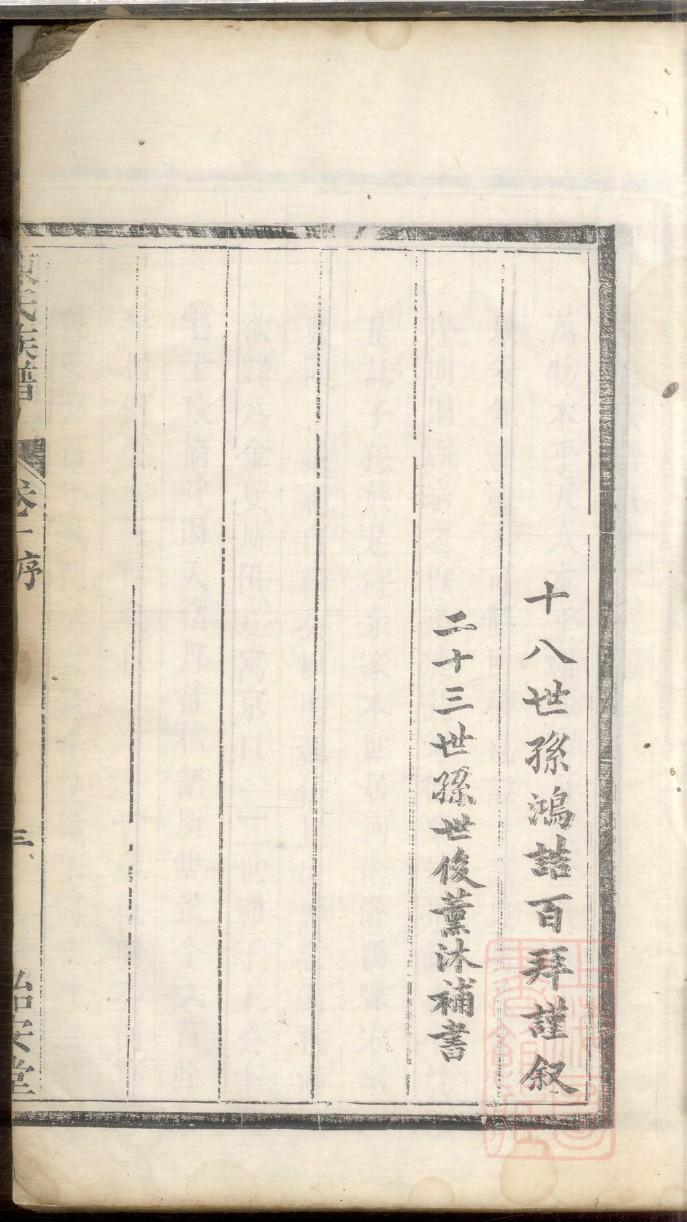 十八世孫鴻誥百拜謹叙
二十三世孫世俊薰沐補書
氏族譜
卷一序
三